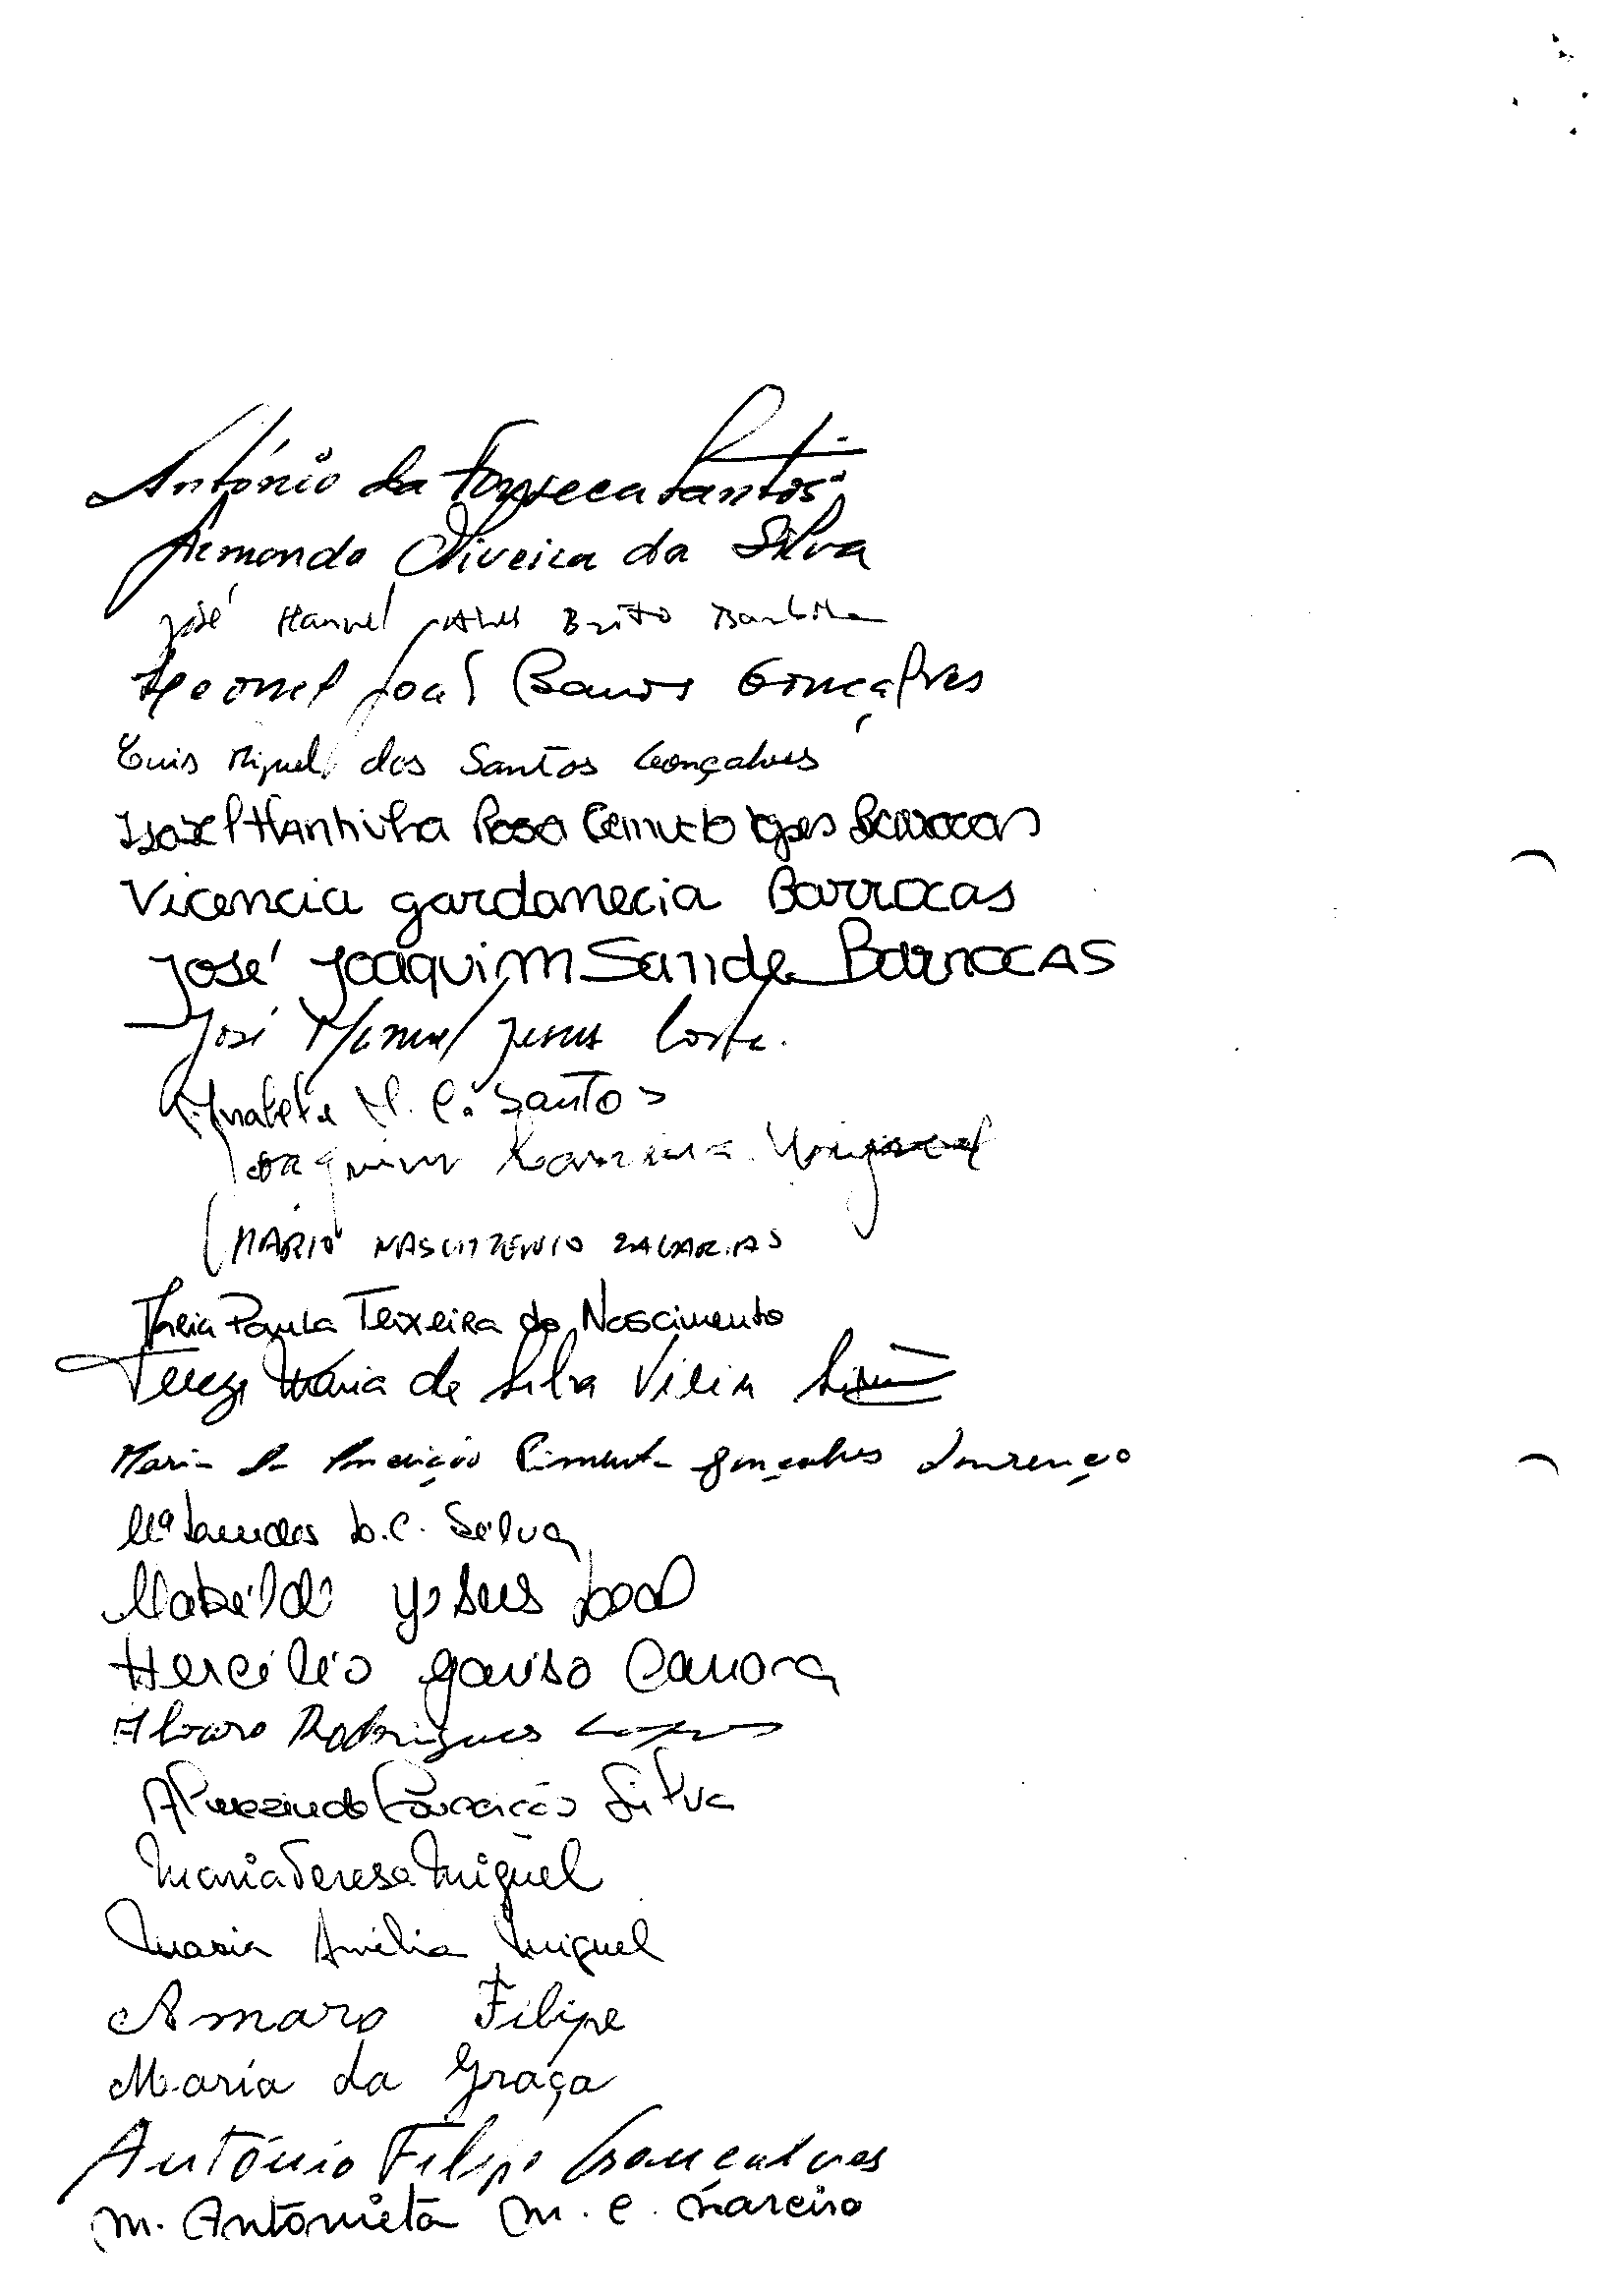 António da Fonseca Santos
Armando Oliveira da Silva
José Manuel Alves Brito
Leonel José Barros Gonçalves
Luis Miguel dos Santos Gonçalves
Rosa Lopes Barrocas
Vicencia gardanecia Barrocas
José Joaquim Sande Barrocas
José Manuel Jesus Costa.
M. C. Santos
Joaquim
MÁRIO NASCIMENTO ZACARIAS
Paula Teixeira do Nascimento
Tereza Maria da Silva Vieira
Maria da Conceição Pimenta Gonçalves Lourenço
Mª Lourdes D.C. Silva
Jesus Leal
Hercílio
Alvaro Rodrigues
Conceição Silva
Maria Teresa Miguel
Maria Amélia Miguel
Amaro Filipe
Maria da Graça
António Filipe Gonçalves
M. Antonieta M. C.